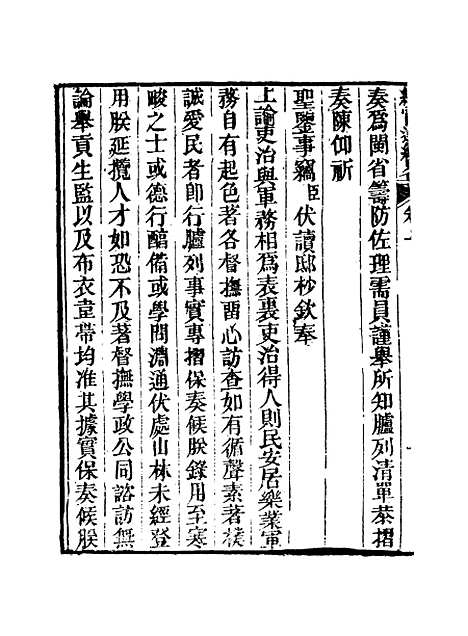 奏爲閩省籌防佐理需員謹舉所知臚列清單恭摺
奏陳仰祈
聖鑒事竊臣伏讀邸抄欽奉
上諭吏治與軍務相爲表裏吏治得人則民安居樂業軍
務自有起色著各督撫留心訪查如有循聲素著樸
誠愛民者卽行臚列事實專摺保奏候朕錄用至寒
畯之士或德行醇備或學問淵通伏處山林未經登
用朕延攬人才如恐不及著督撫學政公同諮訪無
論舉貢生監以及布衣韋帶均准其據實保奏候朕